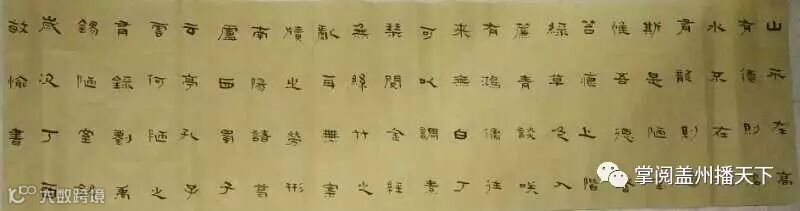 山不在高
有僊則
水不在
有龍則
斯是陋
惟吾德
苔痕上階
綠草色入
簾青談笑
有鴻儒往
来無白丁
可以調素
琴閱金經
無絲竹之
亂耳無案
牘之勞形
南陽諸葛
廬西蜀子
云亭孔子
雲何陋之
有錄劉禹
錫陋室銘
歲次丁酉
愉書
大数跨境
掌阅盖州播天下